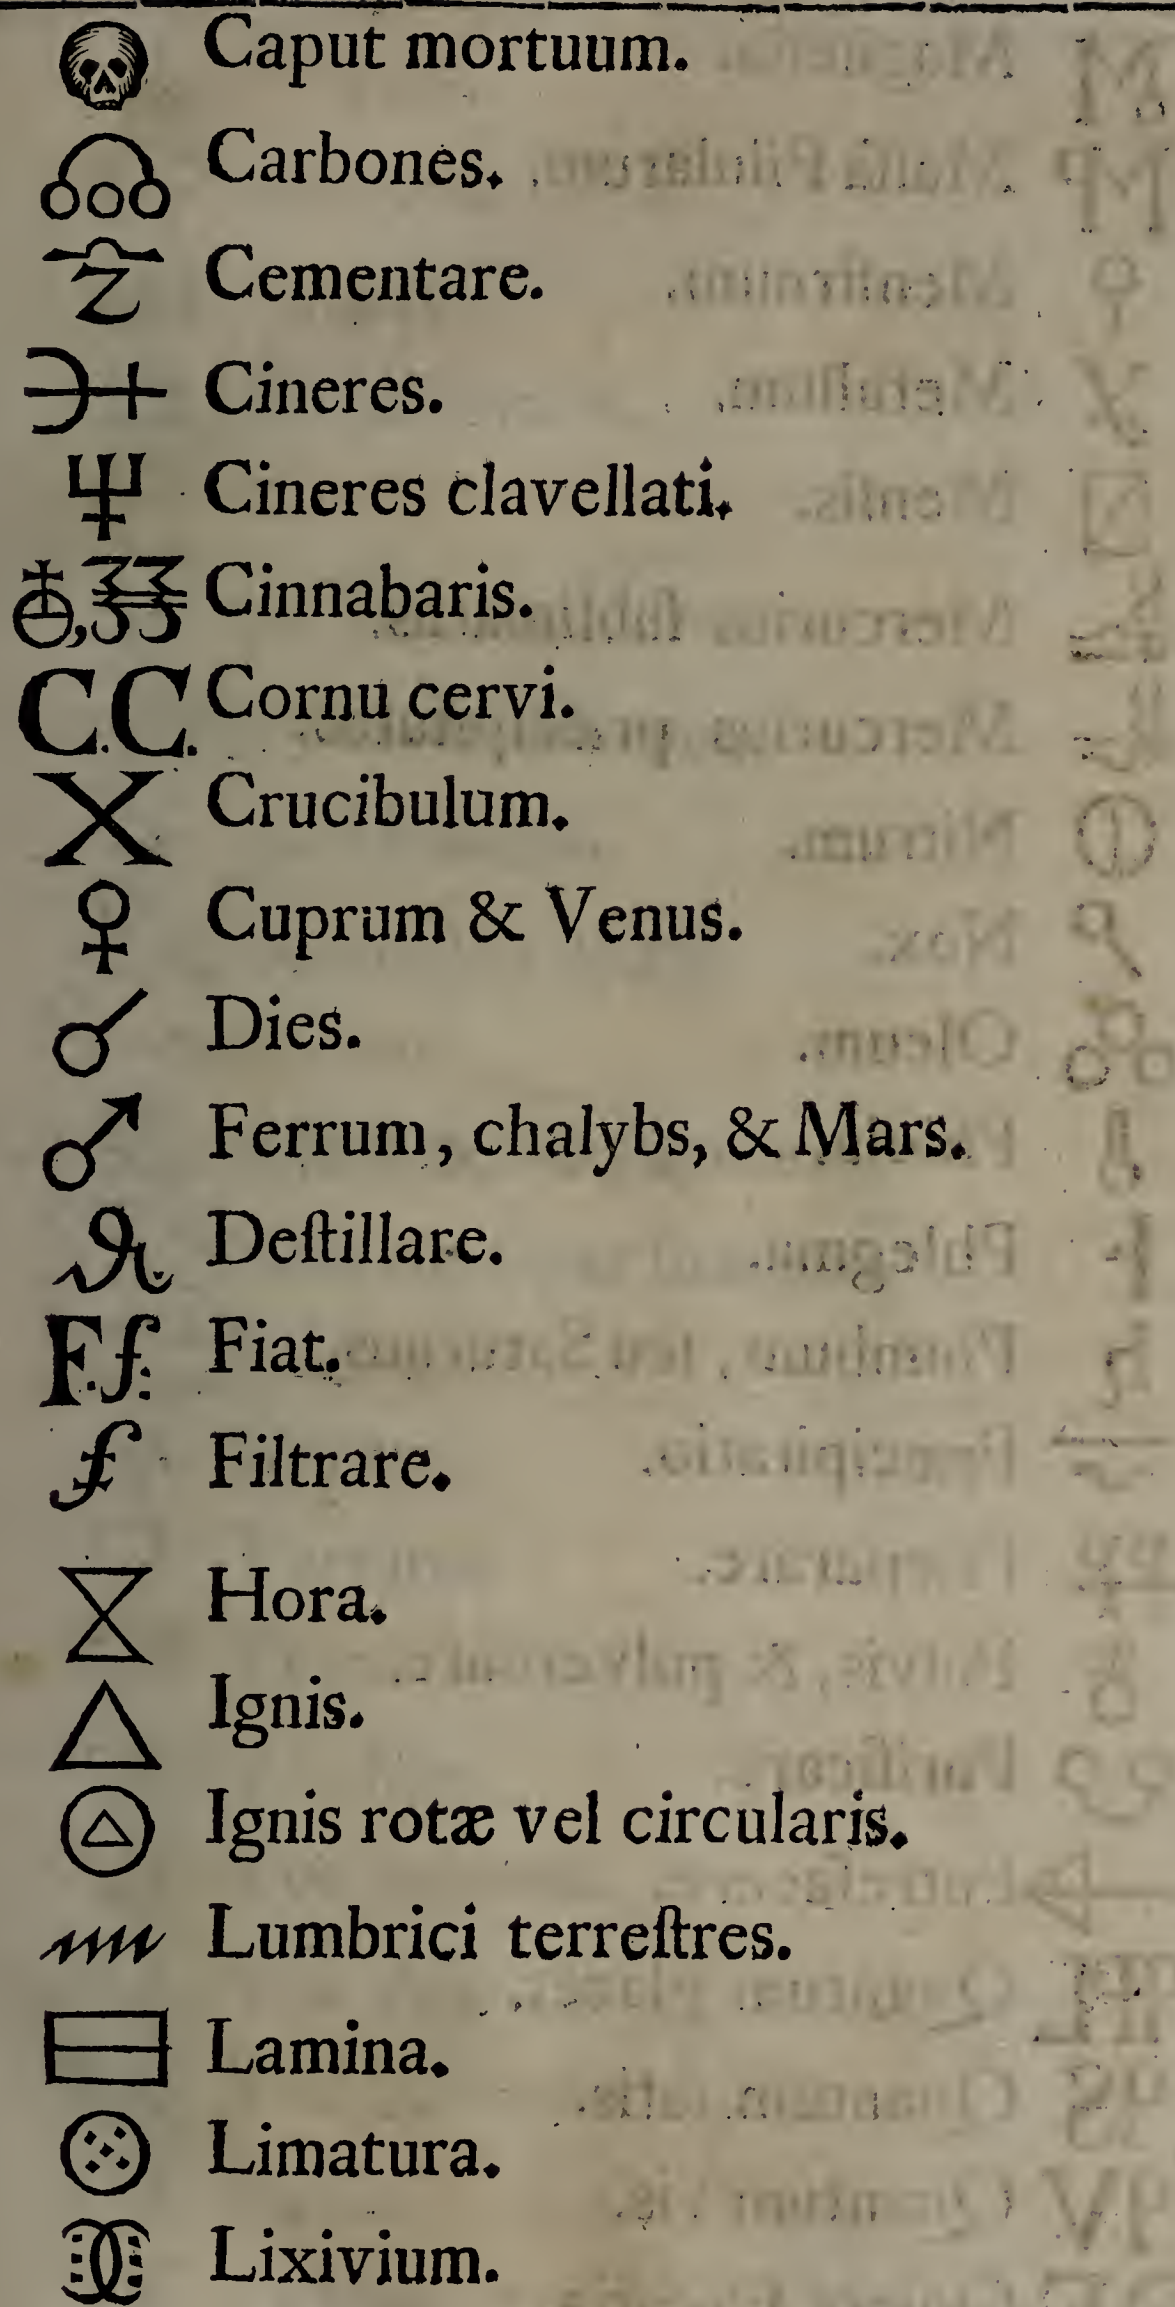 Caput mortuum.
Carbones.
Cementare.
Cineres.
Cineres clavellati.
Cinnabaris.
C.C. Cornu cervi.
X Crucibulum.
♀ Cuprum & Venus.
Dies.
♂ Ferrum, chalybs, & Mars.
Deſtillare.
F.f: Fiat.
Filtrare.
Hora.
△ Ignis.
Ignis rotæ vel circularis.
Lumbrici terreſtres.
Lamina.
Limatura.
Lixivium.